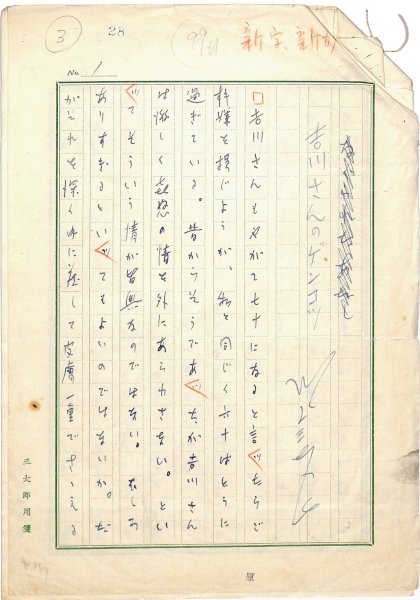 3
28
99
新字、新かな
No. 1
吉川さんのゲンコツ
吉川さんもやがて七十になると言ったらご
機嫌を損じようが、私と同じく六十はとうに
過ぎている。昔からそうであったが吉川さん
は激しく喜怒の情を外にあらわさない。とい
ってそういう情が皆無なのではない。むしろ
ありすぎるといってもよいのではないか。だ
がそれを深く内に蔵して皮膚一重でささえる
三太郎用箋
原